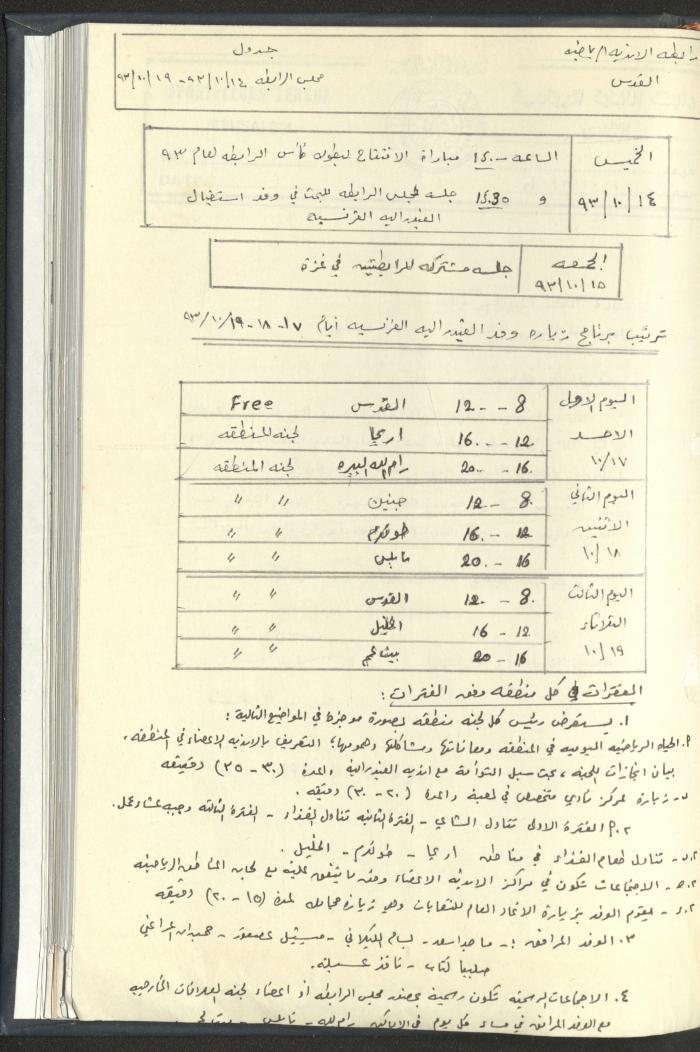 رابطة الاندية الرياضية
القدس
جدول
مجلس الرابطة ١٤/١٠/٩٣ - ١٩/١٠/٩٣
الخميس ١٤/١٠/٩٣
الساعة ١٤.٠٠ مباراة الافتتاح لبطولة كأس الرابطة لعام ٩٣
و 14.30 جلسة لمجلس الرابطة للبحث في وفد استقبال
الفيدرالية الفرنسية
الجمعة ١٥/١٠/٩٣
جلسة مشتركة للرابطتين في غزة
ترتيب برنامج زيارة وفد الفيدرالية الفرنسية أيام ١٧-١٨-١٩/١٠/٩٣
اليوم الاول 8 - 12 القدس Free
الاحد 12 - 16 اريحا لجنة المنطقة
١٠/١٧ 16 - 20 رام الله البيره لجنة المنطقة
اليوم الثاني 8 - 12 جنين " "
الاثنين 12 - 16 طولكرم " "
١٠/١٨ 16 - 20 نابلس " "
اليوم الثالث 8 - 12 القدس " "
الثلاثاء 12 - 16 الخليل " "
١٠/١٩ 16 - 20 بيت لحم " "
الفقرات في كل منطقة وفق الفترات :
١. يستعرض رئيس كل لجنة منطقة بصورة موجزة في المواضيع التالية :
أ. الحياة الرياضية اليومية في المنطقة ومعاناتها ومشاكلها وهمومها، التعريف بالاندية الاعضاء في المنطقة،
بيان انجازات اللجنة، بحث سبل التوأمة مع اندية الفيدرالية والمدة (٣٠ - ٣٥) دقيقة
ب - زيارة لمركز نادي متخصص في لعبة والمدة (٢٠ - ٣٠) دقيقة .
٢.أ الفترة الاولى تتناول الشاي - الفترة الثانية تناول الغذاء - الفترة الثالثة وجبة عشاء عمل.
٢.ب - تناول طعام الغذاء في مناطق اريحا - طولكرم - الخليل .
٢.ج - الاجتماعات تكون في مراكز الاندية الاعضاء وفق ما يتفق عليه مع لجان المناطق الرياضية
٢.د - يقوم الوفد بزيارة الاتحاد العام للنقابات وهي زيارة مجاملة لمدة (١٥ - ٢٠) دقيقة
٣. الوفد المرافق :- ماجد اسعد - بسام الكيلاني - ميشيل عصفور -
٤. الاجتماعات الرسمية تكون رسمية بحضور مجلس الرابطة أو اعضاء لجنة العلاقات الخارجية
مع الوفد المرافق في مساء كل يوم في الاماكن رام الله - نابلس - بيت لحم